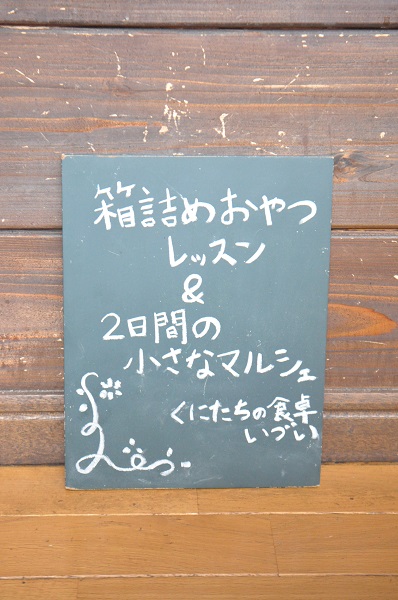 箱詰めおやつ
レッスン
&
2日間の
小さなマルシェ
くにたちの食卓
いづい